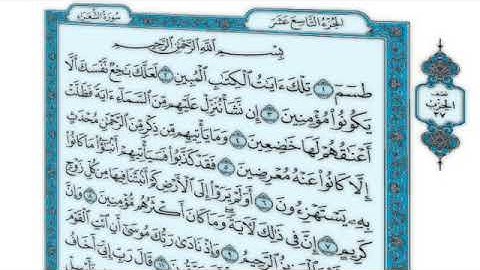 الجزء التاسع عشر
سورة الشعراء
نصف
الحزب
٣٧
بِسْمِ ٱللَّهِ ٱلرَّحْمَٰنِ ٱلرَّحِيمِ
طسٓمٓ ١ تِلْكَ ءَايَٰتُ ٱلْكِتَٰبِ ٱلْمُبِينِ ٢ لَعَلَّكَ بَٰخِعٌ نَّفْسَكَ أَلَّا
يَكُونُوا۟ مُؤْمِنِينَ ٣ إِن نَّشَأْ نُنَزِّلْ عَلَيْهِم مِّنَ ٱلسَّمَآءِ ءَايَةً فَظَلَّتْ
أَعْنَٰقُهُمْ لَهَا خَٰضِعِينَ ٤ وَمَا يَأْتِيهِم مِّن ذِكْرٍ مِّنَ ٱلرَّحْمَٰنِ مُحْدَثٍ
إِلَّا كَانُوا۟ عَنْهُ مُعْرِضِينَ ٥ فَقَدْ كَذَّبُوا۟ فَسَيَأْتِيهِمْ أَنۢبَٰٓؤُا۟ مَا كَانُوا۟
بِهِۦ يَسْتَهْزِءُونَ ٦ أَوَلَمْ يَرَوْا۟ إِلَى ٱلْأَرْضِ كَمْ أَنۢبَتْنَا فِيهَا مِن كُلِّ زَوْجٍ
كَرِيمٍ ٧ إِنَّ فِى ذَٰلِكَ لَءَايَةً وَمَا كَانَ أَكْثَرُهُم مُّؤْمِنِينَ ٨ وَإِنَّ
ٱلْعَزِيزُ ٱلرَّحِيمُ ٩ وَإِذْ نَادَىٰ رَبُّكَ مُوسَىٰٓ أَنِ ٱئْتِ ٱلْقَوْمَ
يَتَّقُونَ ١١ قَالَ رَبِّ إِنِّىٓ أَخَافُ